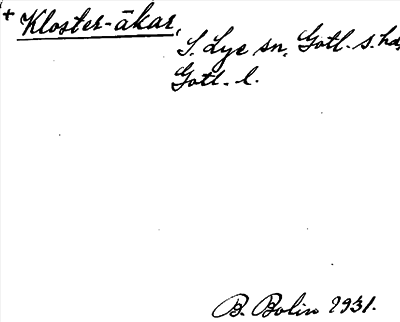 + Kloster-åkar,
S. Lye sn, Gotl. s. hd,
Gotl. l.
B. Bolin 1931.